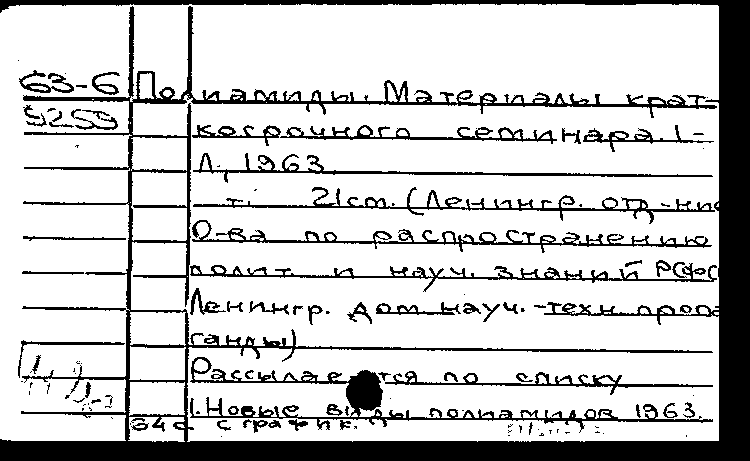 63-6 Полиамиды. Материалы крат-
5259 косрочного семинара. 1-
Л., 1963.
т. 21см. (Ленингр. отд-ние
О-ва по распространению
полит. и науч. знаний РСФС
Ленингр. дом науч.-техн. пропа
ганды)
Рассылается по списку
1. Новые виды полиамидов 1963.
64 с. с график.